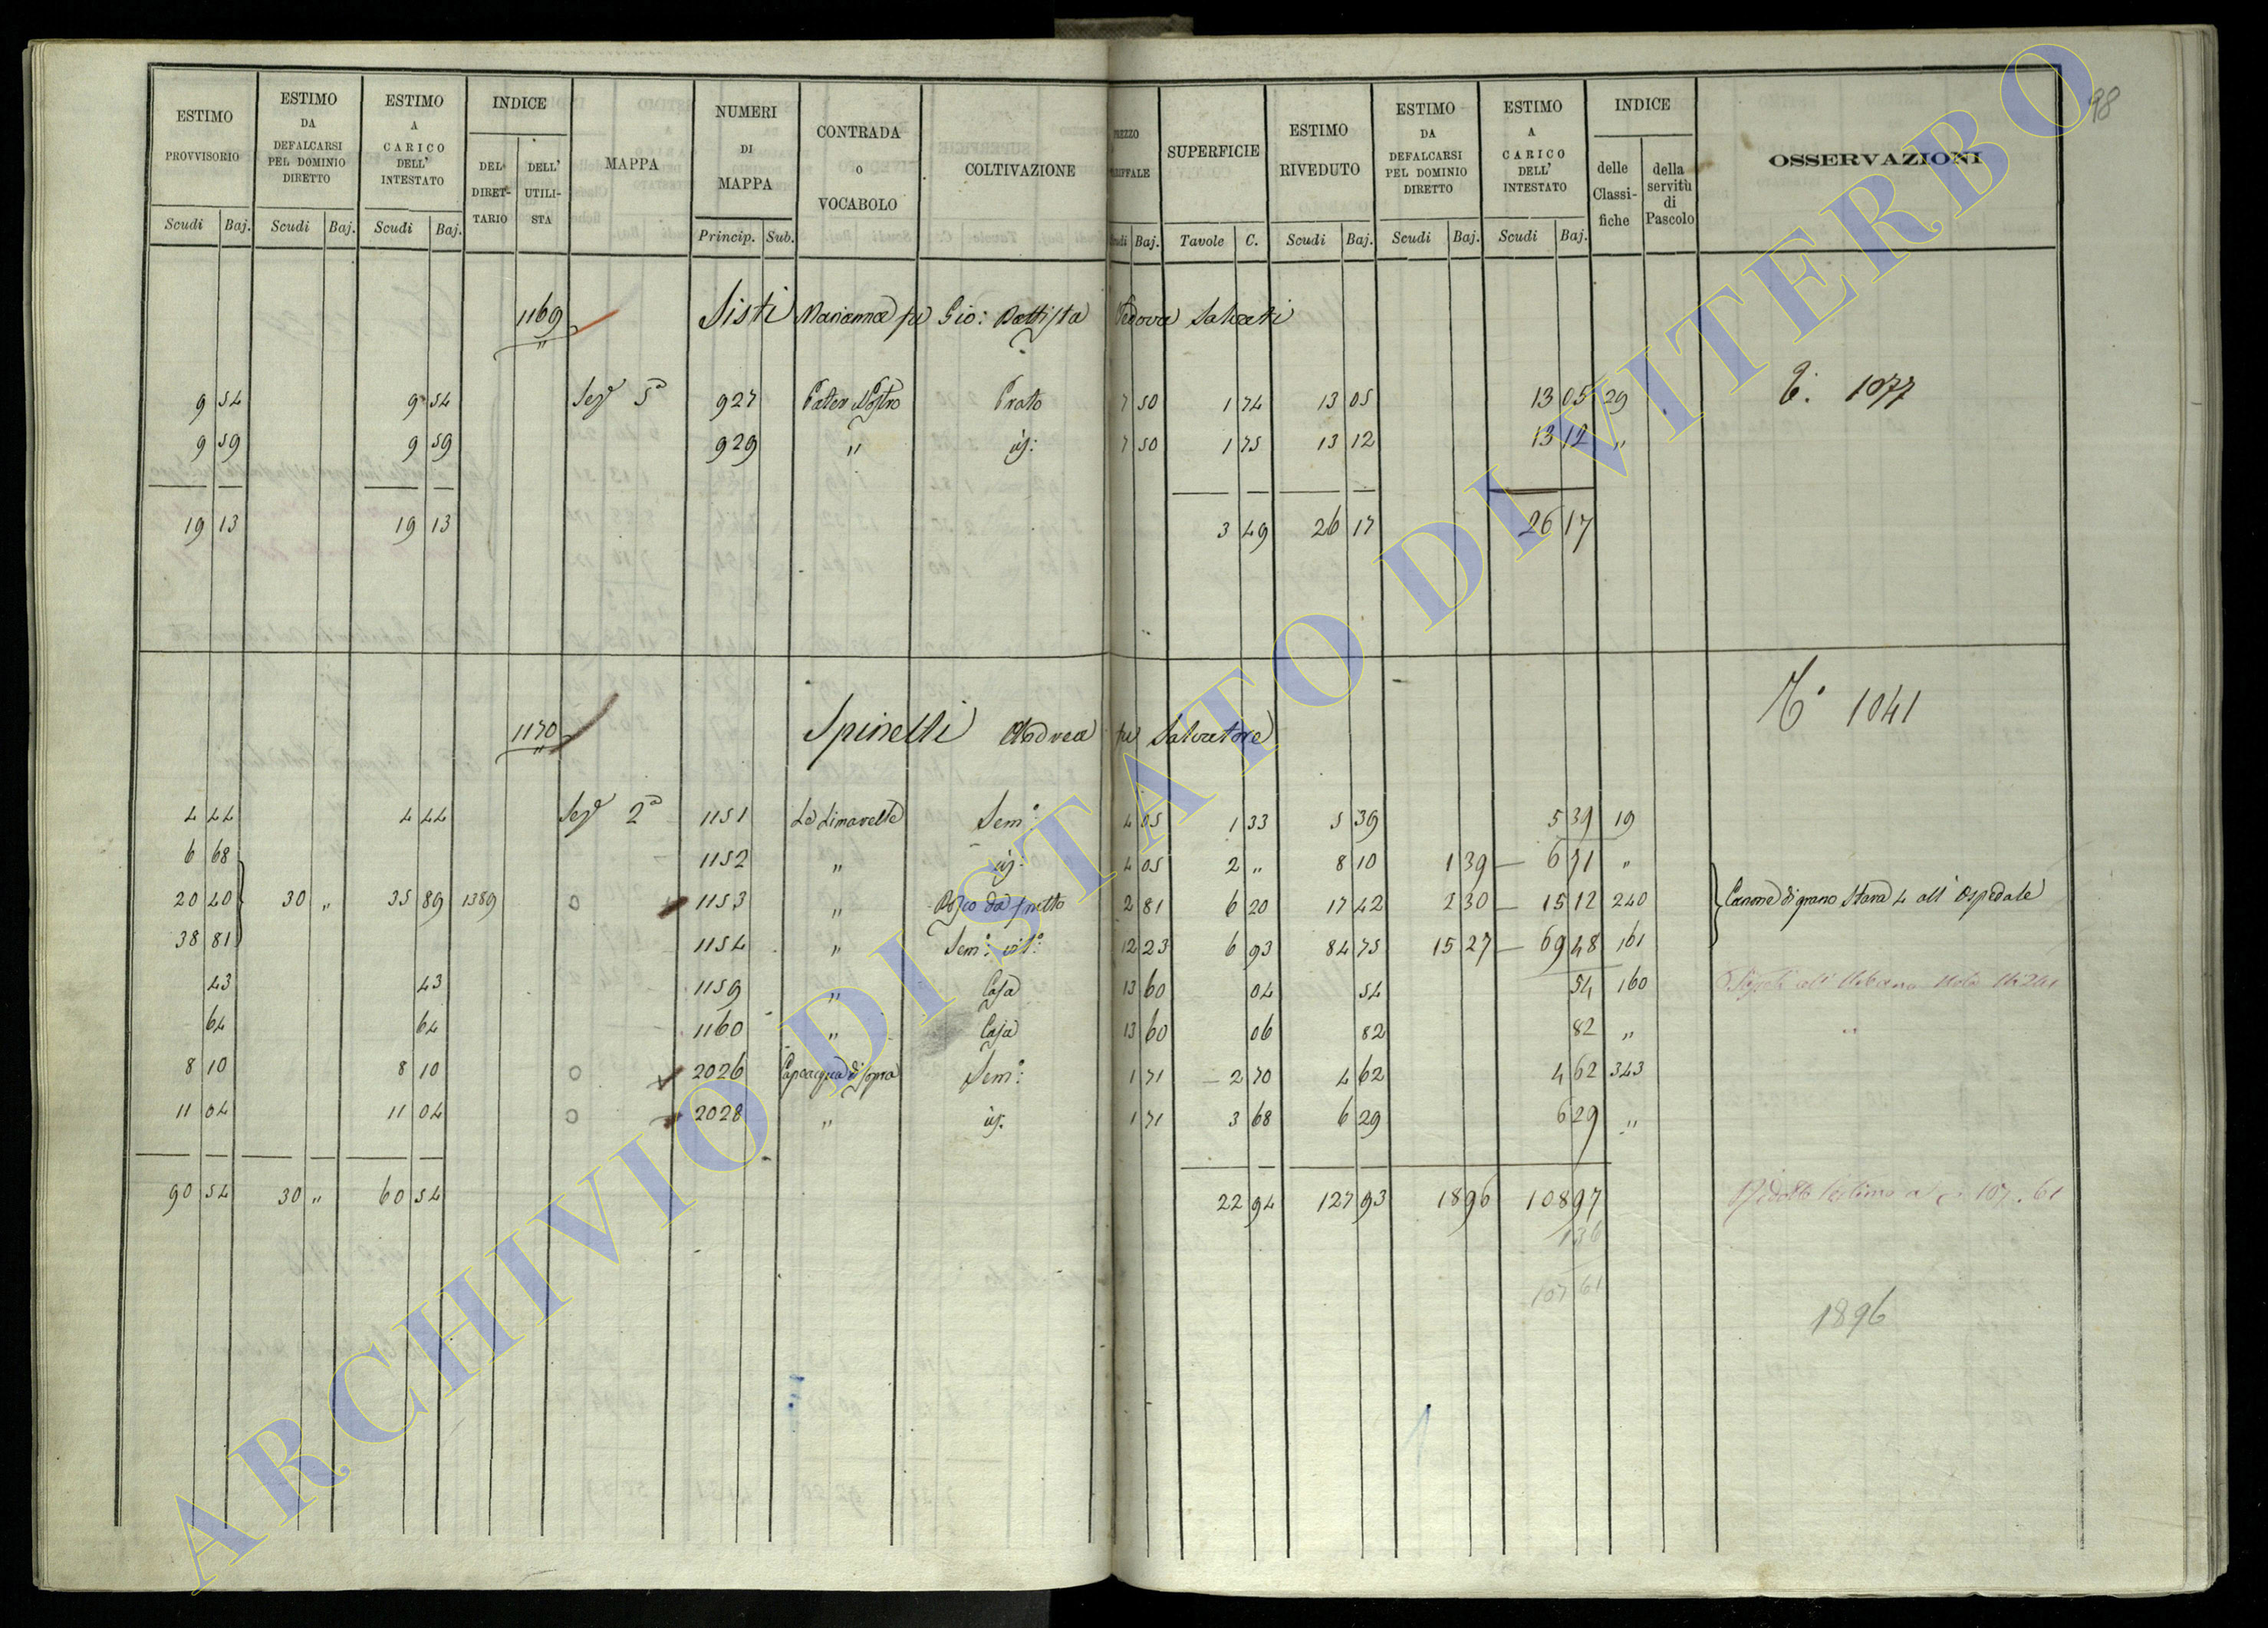 98
ESTIMO PROVVISORIO Scudi Baj. ESTIMO DA DEFALCARSI PEL DOMINIO DIRETTO Scudi Baj. ESTIMO A CARICO DELL' INTESTATO Scudi Baj. INDICE DEL DIRETTARIO DELL' UTILISTA MAPPA NUMERI DI MAPPA Princip. Sub. CONTRADA O VOCABOLO COLTIVAZIONE SUPERFICIE Tavole C. ESTIMO RIVEDUTO Scudi Baj. ESTIMO DA DEFALCARSI PEL DOMINIO DIRETTO Scudi Baj. ESTIMO A CARICO DELL' INTESTATO Scudi Baj. INDICE delle Classifiche della servitù di Pascolo OSSERVAZIONI
1169 Sisti Marianna fu Gio: Battista Vedova Salvati
9 54 9 54 Sez. 5a 927 Pater Nostro Prato 7 50 1 74 13 05 13 05 29 T. 1077
9 59 9 59 929 " id: 7 50 1 75 13 12 13 12 "
19 13 19 13 3 49 26 17 26 17
T. 1041
1170 Spinelli Andrea fu Salvatore
4 44 4 44 Sez. 2a 1151 Le Simarelle Sem.o 4 05 1 33 5 39 5 39 19
6 68 1152 " id: 4 05 2 " 8 10 1 39 6 71 "
20 40 30 " 35 89 1389 1153 " Bosco da frutto 2 81 6 20 17 42 2 30 15 12 240 Canone di grano Stara 4 all' Ospedale
38 81 1154 " Sem.o vit.o 12 23 6 93 84 75 15 27 69 48 161
43 43 1159 " Casa 13 60 04 54 54 160
64 64 1160 " Casa 13 60 06 82 82 " "
8 10 8 10 2026 Capoacqua di sopra Sem.o 1 71 2 70 4 62 4 62 343
11 04 11 04 2028 " id. 1 71 3 68 6 29 6 29 "
90 54 30 " 60 54 22 94 127 93 18 96 108 97 107.61
1 36
107 61
1896
ARCHIVIO DI STATO DI VITERBO